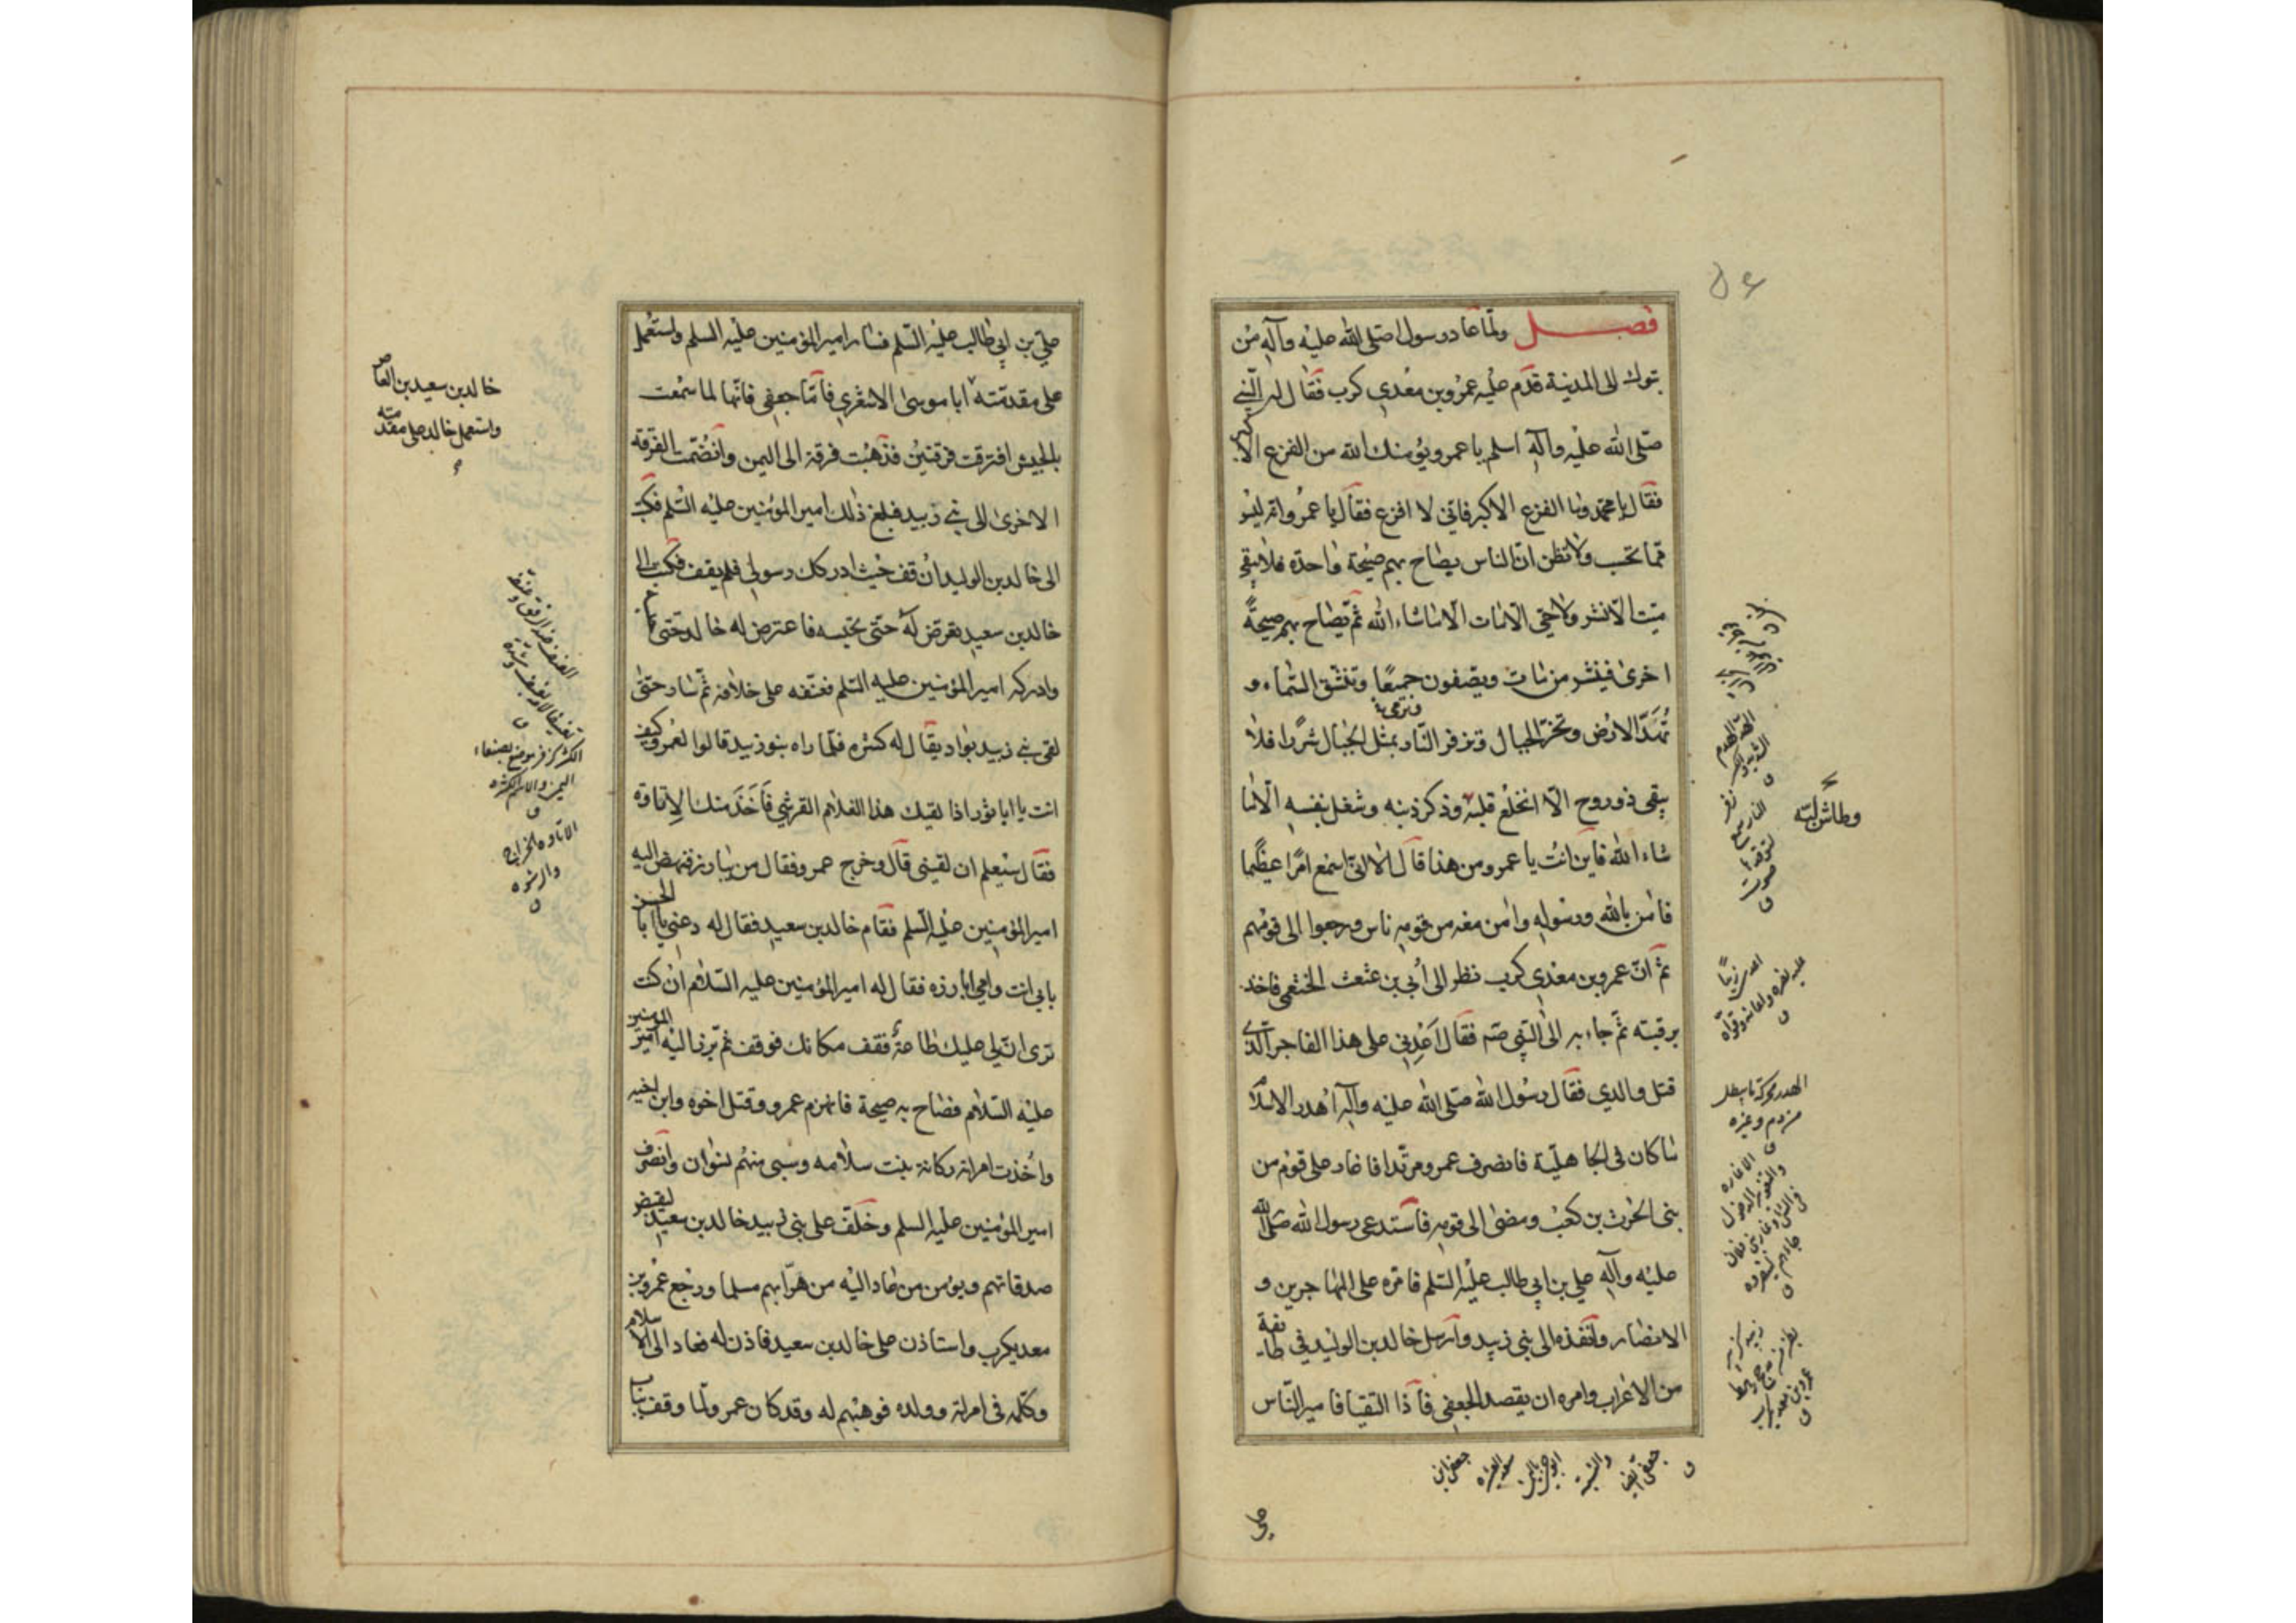 فصل ولمّا عاد رسول الله صلى الله عليه وآله من
تبوك الى المدينة قدم عليه عمرو بن معدي كرب فقال له النبي
صلى الله عليه وآله اسلم يا عمرو يؤمنك الله من الفزع الاكبر
فقال يا محمد وما الفزع الاكبر فاني لا افزع فقال يا عمرو انه ليس
مما تحسب ولا تظن ان الناس يصاح بهم صيحة واحدة فلا يبقى
ميت الا نشر ولا حي الا مات الا ما شاء الله ثم يصاح بهم صيحةً
اخرى فينشر من مات ويصفون جميعًا وتنشق السماء و
تُهدّ الارض وتخر الجبال وتزفر النار بمثل الجبال شررا فلا
وترمى
يبقى ذو روح الا انخلع قلبه وذكر ذنبه وشغل بنفسه الا ما
وطاش لبّه
شاء الله فاين انت يا عمرو من هذا قال الا انى اسمع امرًا عظيما
فامن بالله ورسوله وامن معه من قومه ناس ورجعوا الى قومهم
ثم ان عمرو بن معدي كرب نظر الى أبي بن عثعث الخثعمي فاخذ
برقبته ثم جاء به الى النبي صلم فقال اعدني على هذا الفاجر الذي
قتل والدي فقال رسول الله صلى الله عليه وآله أهدر الاسلام
ما كان في الجاهلية فانصرف عمرو مرتدا فاغار على قوم من
بني الحرث بن كعب ومضى الى قومه فاستدعى رسول الله صلى الله
عليه وآله علي بن ابي طالب عليه السلم فامره على المهاجرين و
الانصار وانفذه الى بني زبيد وارسل خالد بن الوليد في طائفة
من الاعراب وامره ان يقصد الجعفي فاذا التقيا فامير الناس
علي
علي بن ابي طالب عليه السّلم فسار امير المؤمنين عليه السلم واستعمل
على مقدمته ابا موسى الاشعري فاما جعفي فانها لما سمعت
بالجيش افترقت فرقتين فذهبت فرقة الى اليمن وانضمت الفرقة
الاخرى الى بني زبيد فبلغ ذلك امير المؤمنين عليه السّلم فكتب
الى خالد بن الوليد أن قف حيث ادركك رسولي فلم يقف فكتب الى
خالد بن سعيد تعرض له حتى تحبسه فاعترض له خالد حتى حبسه
وادركه امير المؤمنين عليه السّلم فعنفه على خلافه ثم سار حتى
لقى بني زبيد بواد يقال له كشر فلما راه بنو زبيد قالوا لعمرو كيف
انت يا ابا ثور اذا لقيك هذا الغلام القرشي فاخذ منك الإتاوة
فقال سيعلم ان لقيني قال وخرج عمرو فقال من يبارز فنهض اليه
امير المؤمنين عليه السلم فقام خالد بن سعيد فقال له دعني يا ابا الحسن
بابي انت وامي ابارزه فقال له امير المؤمنين عليه السّلام ان كنت
ترى ان لي عليك طاعة فقف مكانك فوقف ثم برز اليه امير المؤمنين
عليه السّلام فصاح به صيحة فانهزم عمرو وقتل اخوه وابن اخيه
وأخذت امراته ركانة بنت سلامه وسبي منهم نسوان وانصرف
امير المؤمنين عليه السلم وخلف على بني زبيد خالد بن سعيد ليقبض
صدقاتهم ويؤمن من عاد اليه من هرّابهم مسلما ورجع عمرو بن
معديكرب واستاذن على خالد بن سعيد فاذن له فعاد الى الاسلام
وكلمه في امراته وولده فوهبهم له وقد كان عمرو لما وقف بباب
خالد بن سعيد بن العاص
واستعمل خالد على مقدمته
الاتاوه الخراج
والرشوه